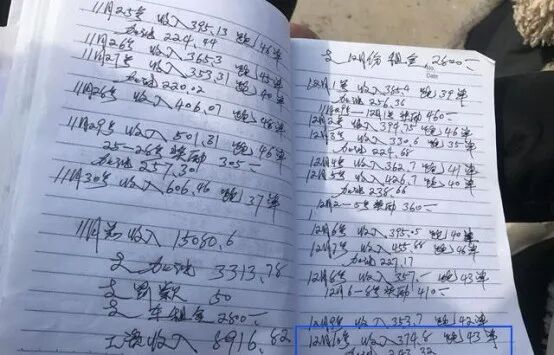 11月25号 收入 395.13 跑 48单
加油 224.44
11月26号 收入 365.3
11月27号 收入 353.31 跑 43单
加油 220.02 跑 40单
11月28号 收入 406.07 跑 48单
11月29号 收入 501.31 跑 46单
25-28号 奖励 305.-
加油 257.30
11月30号 收入 606.46 跑 37单
11月总收入 15080.6
支 加油 3313.78
支 罚款 50
支 车租金 2800.-
工资收入 8916.82
支 12月份 租金 2600.-
No.
Date
12月1号 收入 365.4 跑 39单
加油 256.36
11月29号-12月1号 奖励 460.-
12月2号 收入 394.75 跑 46单
12月3号 收入 330.6 跑 35单
加油 224.68
12月4号 收入 362.7 跑 41单
12月5号 收入 426.7 跑 40单
加油 238.66
12月2-5号 奖励 360.-
12月6号 收入 395.05 跑 40单
12月7号 收入 455.88 跑 48单
加油 227.17
12月8号 收入 357.- 跑 43单
12月6-8号 奖励 410.-
12月9号 收入 353.7 跑 42单
12月10号 收入 374.8 跑 43单
加油 243.32